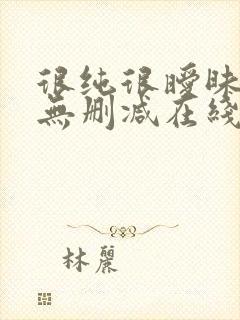 很纯很暧昧
無删减在綫
林麗